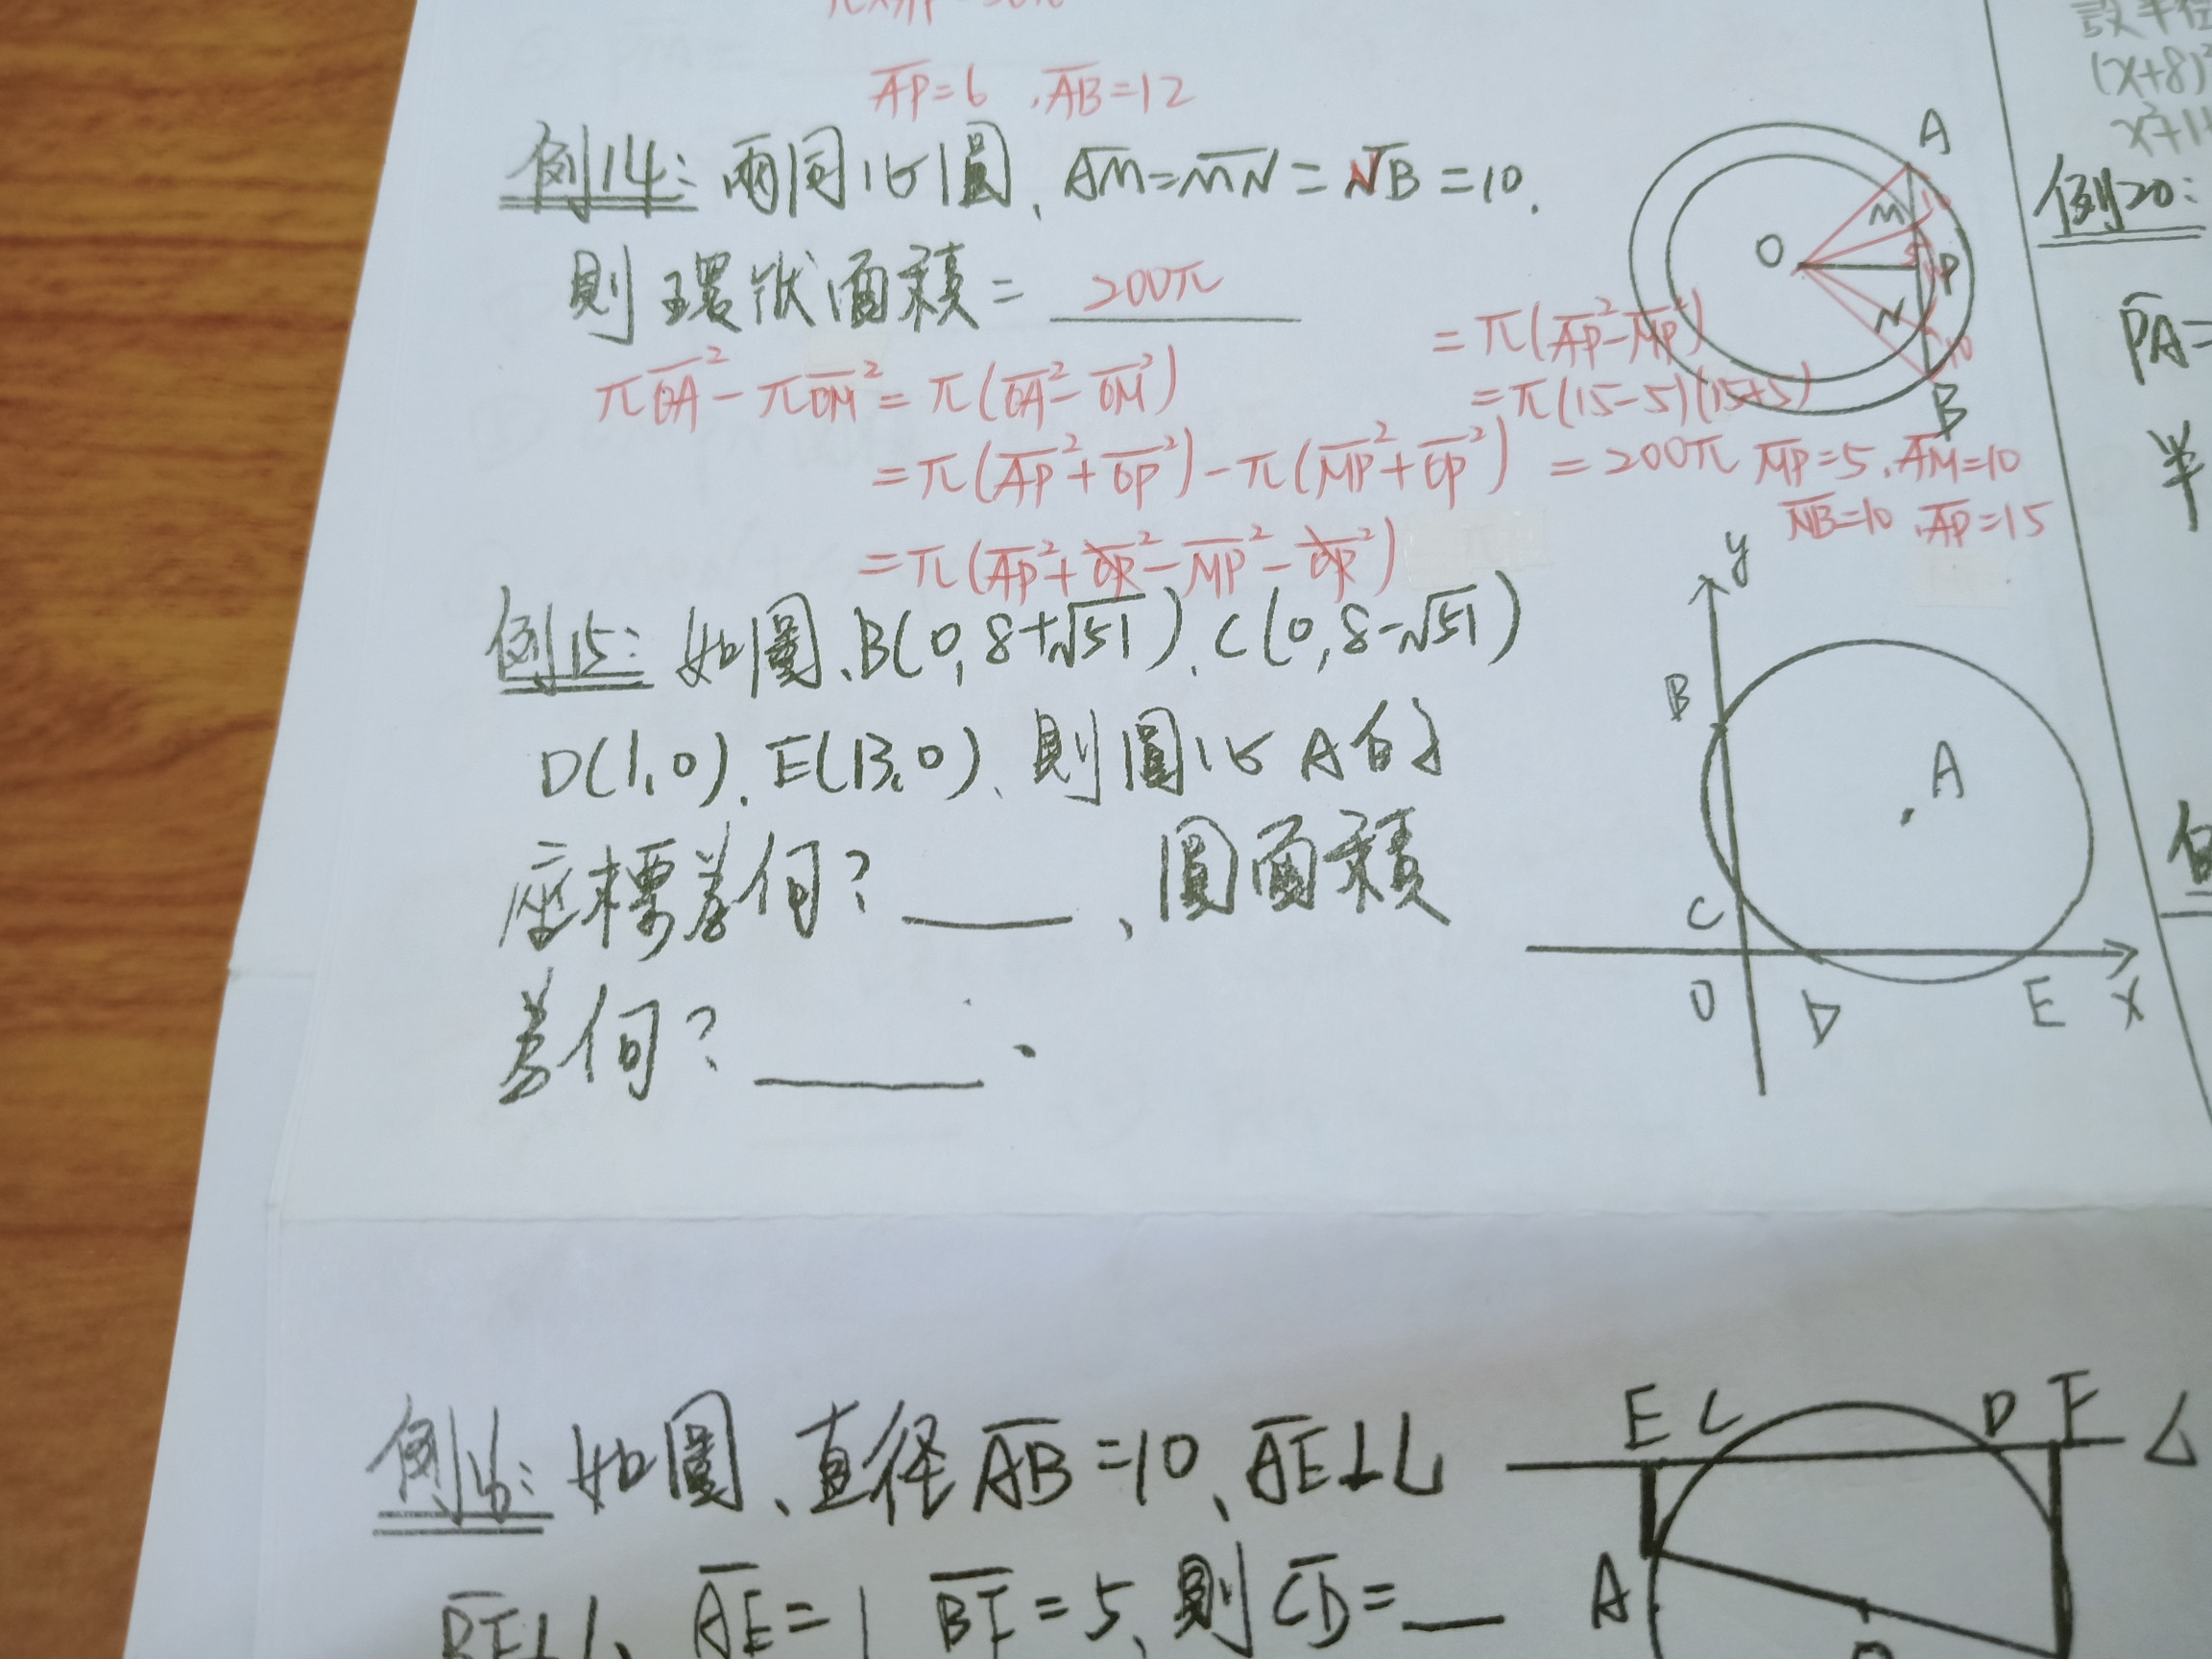 AP=6 、AB=12
例14: 兩同心圓、AM=MN=NB=10.
則環狀面積= 200π
πOA²-πOM²=π(OA²-OM²)
=π(AP²+OP²)-π(MP²+OP²)
=π(AP²+OP²-MP²-OP²)
=π(AP²-MP²)
=π(15-5)(15+5)
=200π
MP=5、AM=10
NB=10、AP=15
A
M
10
O
5
P
N
10
B
例15: 如圖、B(0,8+√51)、C(0,8-√51)
D(1,0)、E(13,0)、則圓心A的
座標為何?____、圓面積
為何?____、
y
B
A
C
O
D
E
X
例16: 如圖、直徑AB=10、AE⊥L
BF⊥L、AE=1 BF=5、則CD=__
E
C
D
F
L
A
O
設半徑
(x+8)²
例20:
PA=
半